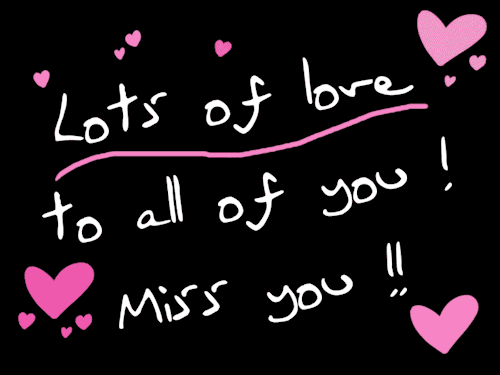 Lots of love
to all of you !
Miss you !!